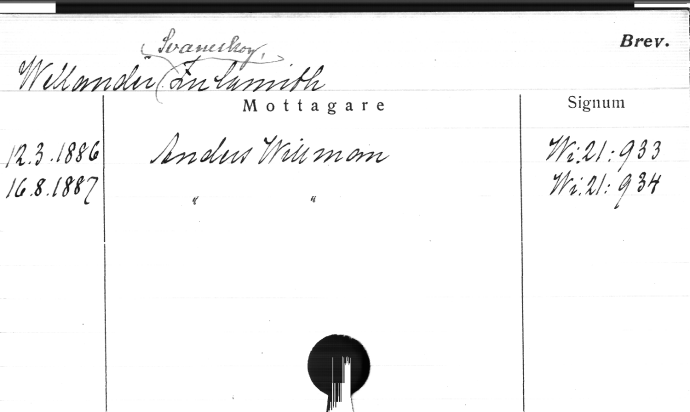 Brev.
Mottagare
Signum
12.3.1886 Anders Willman Wi.21:933
16.8.1887 " " Wi.21:934